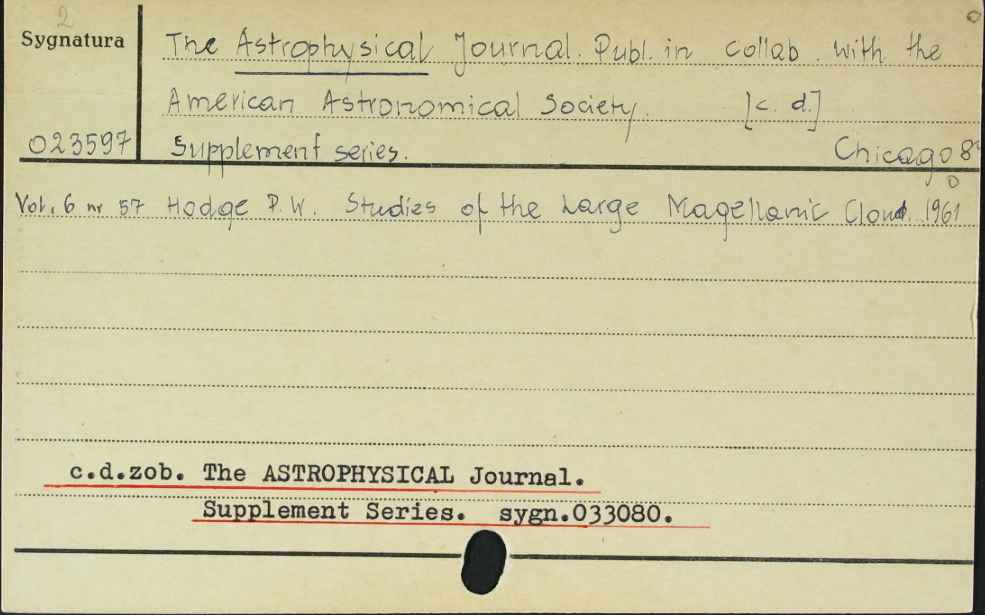 2
Sygnatura
The Astrophysical Journal. Publ. in collab. with the
American Astronomical Society. [c. d.]
023597
Supplement series. Chicago 8°
Vol. 6 nr 57 Hodge P.W. Studies of the Large Magellanic Cloud. 1961
c.d.zob. The ASTROPHYSICAL Journal.
Supplement Series. sygn.033080.